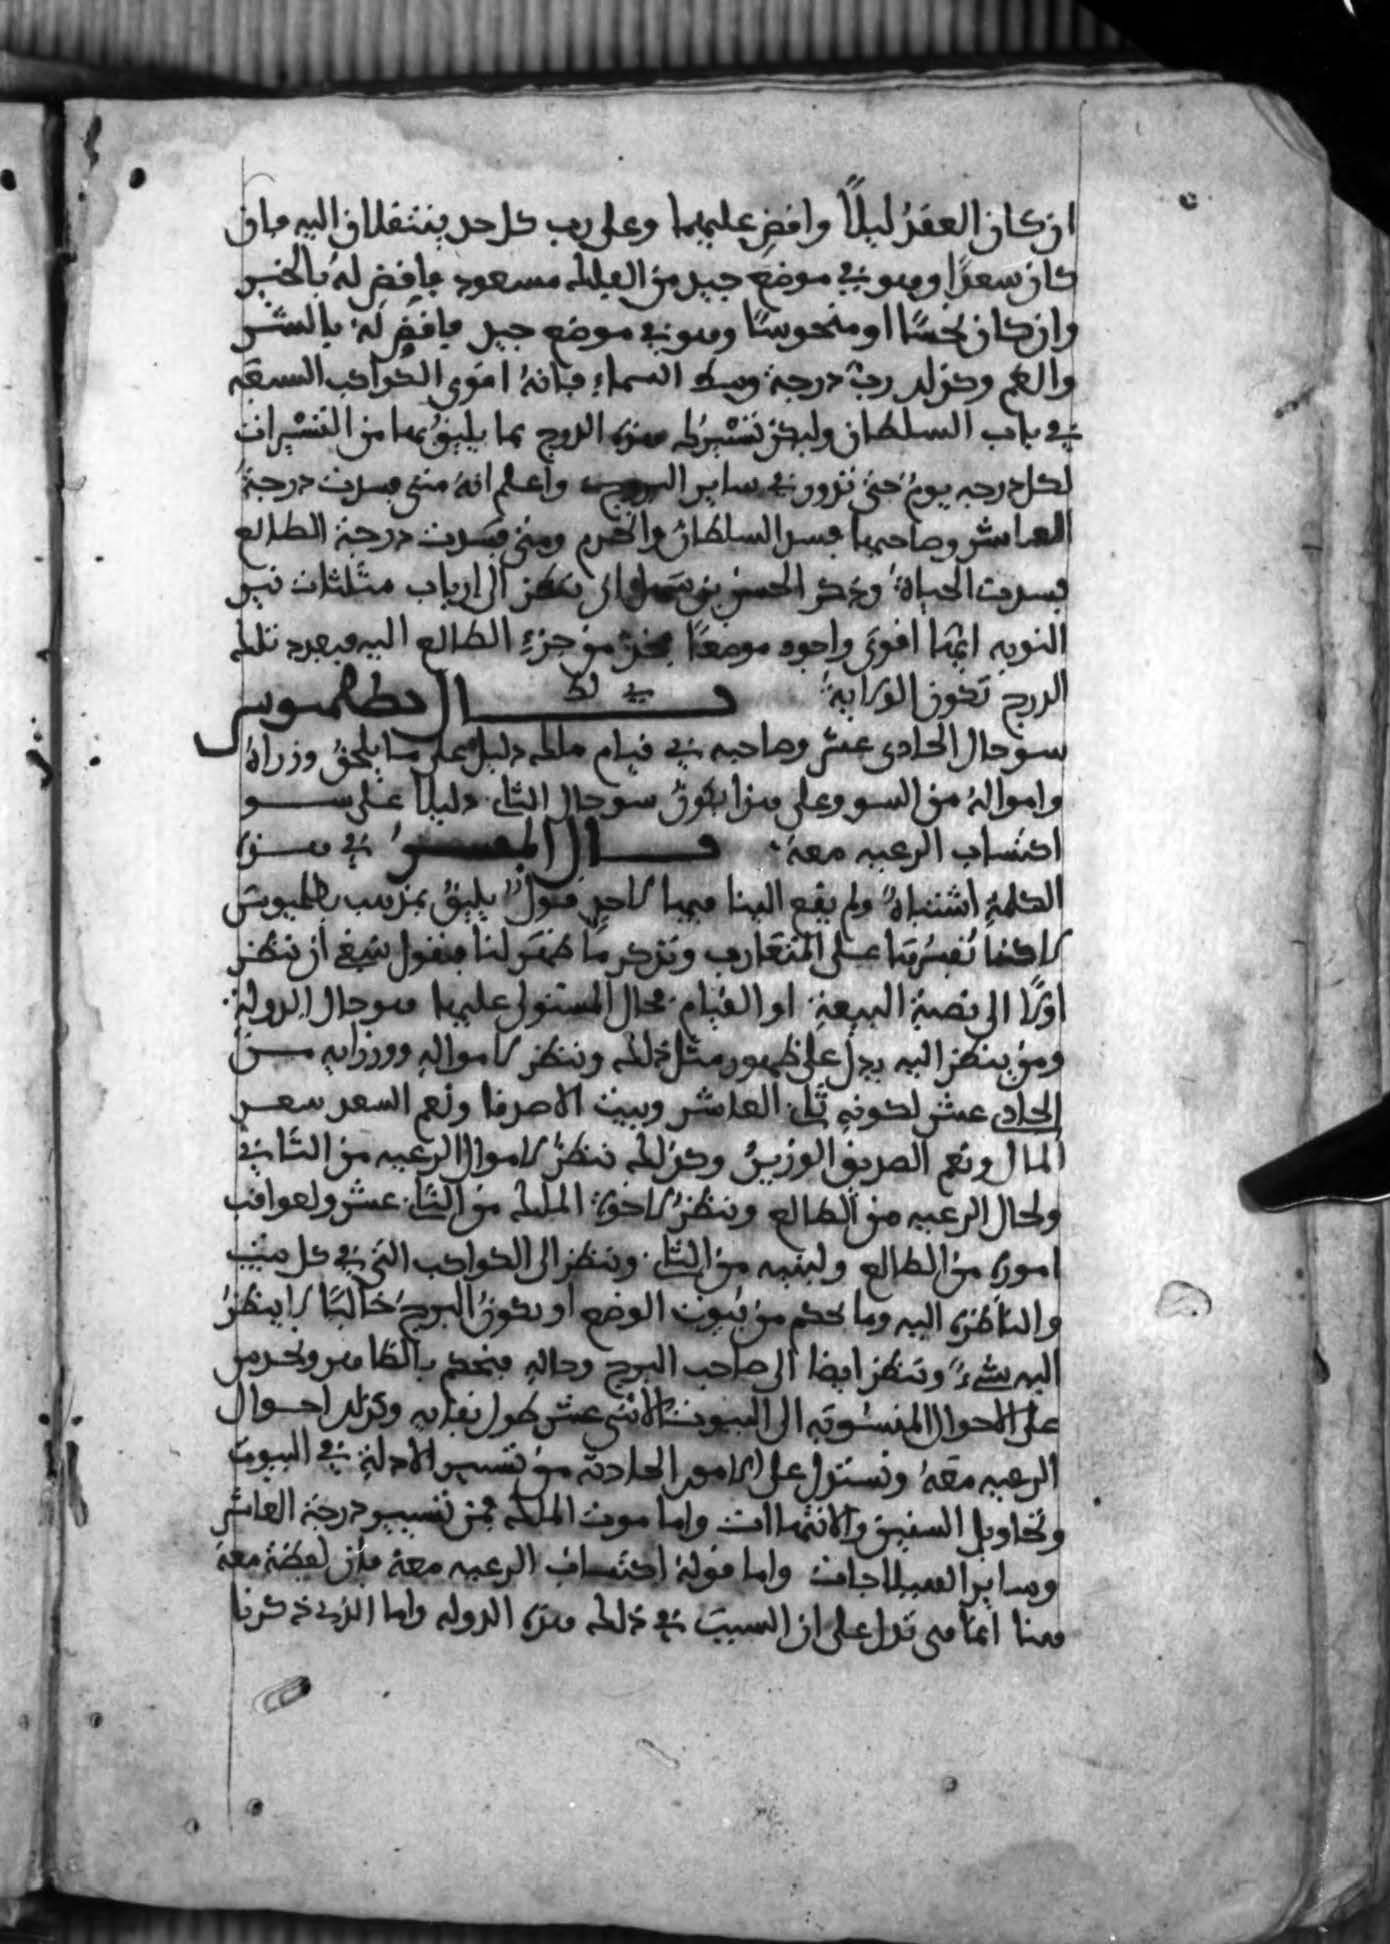 ان كان العقد ليلا واقض عليهما وعلى رب كل حد ينتقلان اليه فان
كان سعدا وهو في موضع جيد من الفلك مسعود فاقض له بالخير
وان كان نحسا او منحوسا وهو في موضع جيد فاقض له بالشر
والغم وكذلك رب درجة وسط السماء فانه اقوى الكواكب السبعة
في باب السلطان وليكن تسييرك هذه الدرج بما يليق بها من التسييرات
لكل درجه يوم حتى تدور في ساير البروج واعلم انه متى فسدت درجة
العاشر وصاحبها فسد السلطان وانخرم ومتى فسدت درجة الطالع
فسدت الحياة وذكر الحسن بن سهل ان ينظر الى ارباب مثلثات نير
النوبه ايها اقوى واجود موضعا فخذ من جزء الطالع اليه فبعدد تلك
الدرج تكون الولاية قال بطلميوس
سو حال الحادى عشر وصاحبه في قيام ملك دليل على ما يلحق وزراه
وامواله من السو وعلى هذا يكون سو حال الثاني دليلا على سو
اكتساب الرعيه معه قال المفسر في هذه
الكلمة اشتباه ولم يقع الينا فيها لاحد قول يليق بمذهب بطلميوس
لاكنا نفسرها على المتعارف ونذكر ما ظهر لنا فنقول ينبغي ان ننظر
اولا الى نصبة البيعة او القيام فحال المستولى عليها هو حال الدولة
ومن ينظر اليه يدل على ظهور مثل ذلك وننظر لاموله ووزرايه من
الحادي عشر لكونه ثاني العاشر وبيت الاصدقا ونعم السعد سعد
المال ونعم الصديق الوزير وكذلك ننظر لاموال الرعيه من الثاني
ولحال الرعيه من الطالع وننظر لاخوة الملك من الثاني عشر ولعواقب
اموره من الطالع ولبنيه من الثاني وننظر الى الكواكب التي في كل بيت
والناظرة اليه وما يحكم من بيوت الوضع او يكون البرج خاليا لا ينظر
اليه شيء وننظر ايضا الى صاحب البرج وحاله فنحكم بالظاهر ونحدس
على الاحوال المنسوبه الى البيوت الاثني عشر طول بقايه وكذلك احوال
الرعيه معه ونستدل على الامور الحادثه من تسيير الادلة في البيوت
وتحاويل السنين والانتهاات واما موت الملك فمن تسيير درجة العاشر
وساير الهيلاجات واما قوله اكتساب الرعيه معه فان لفظة معه
هنا انما هي تدل على ان السبب في ذلك هذه الدوله واما الذي ذكرنا